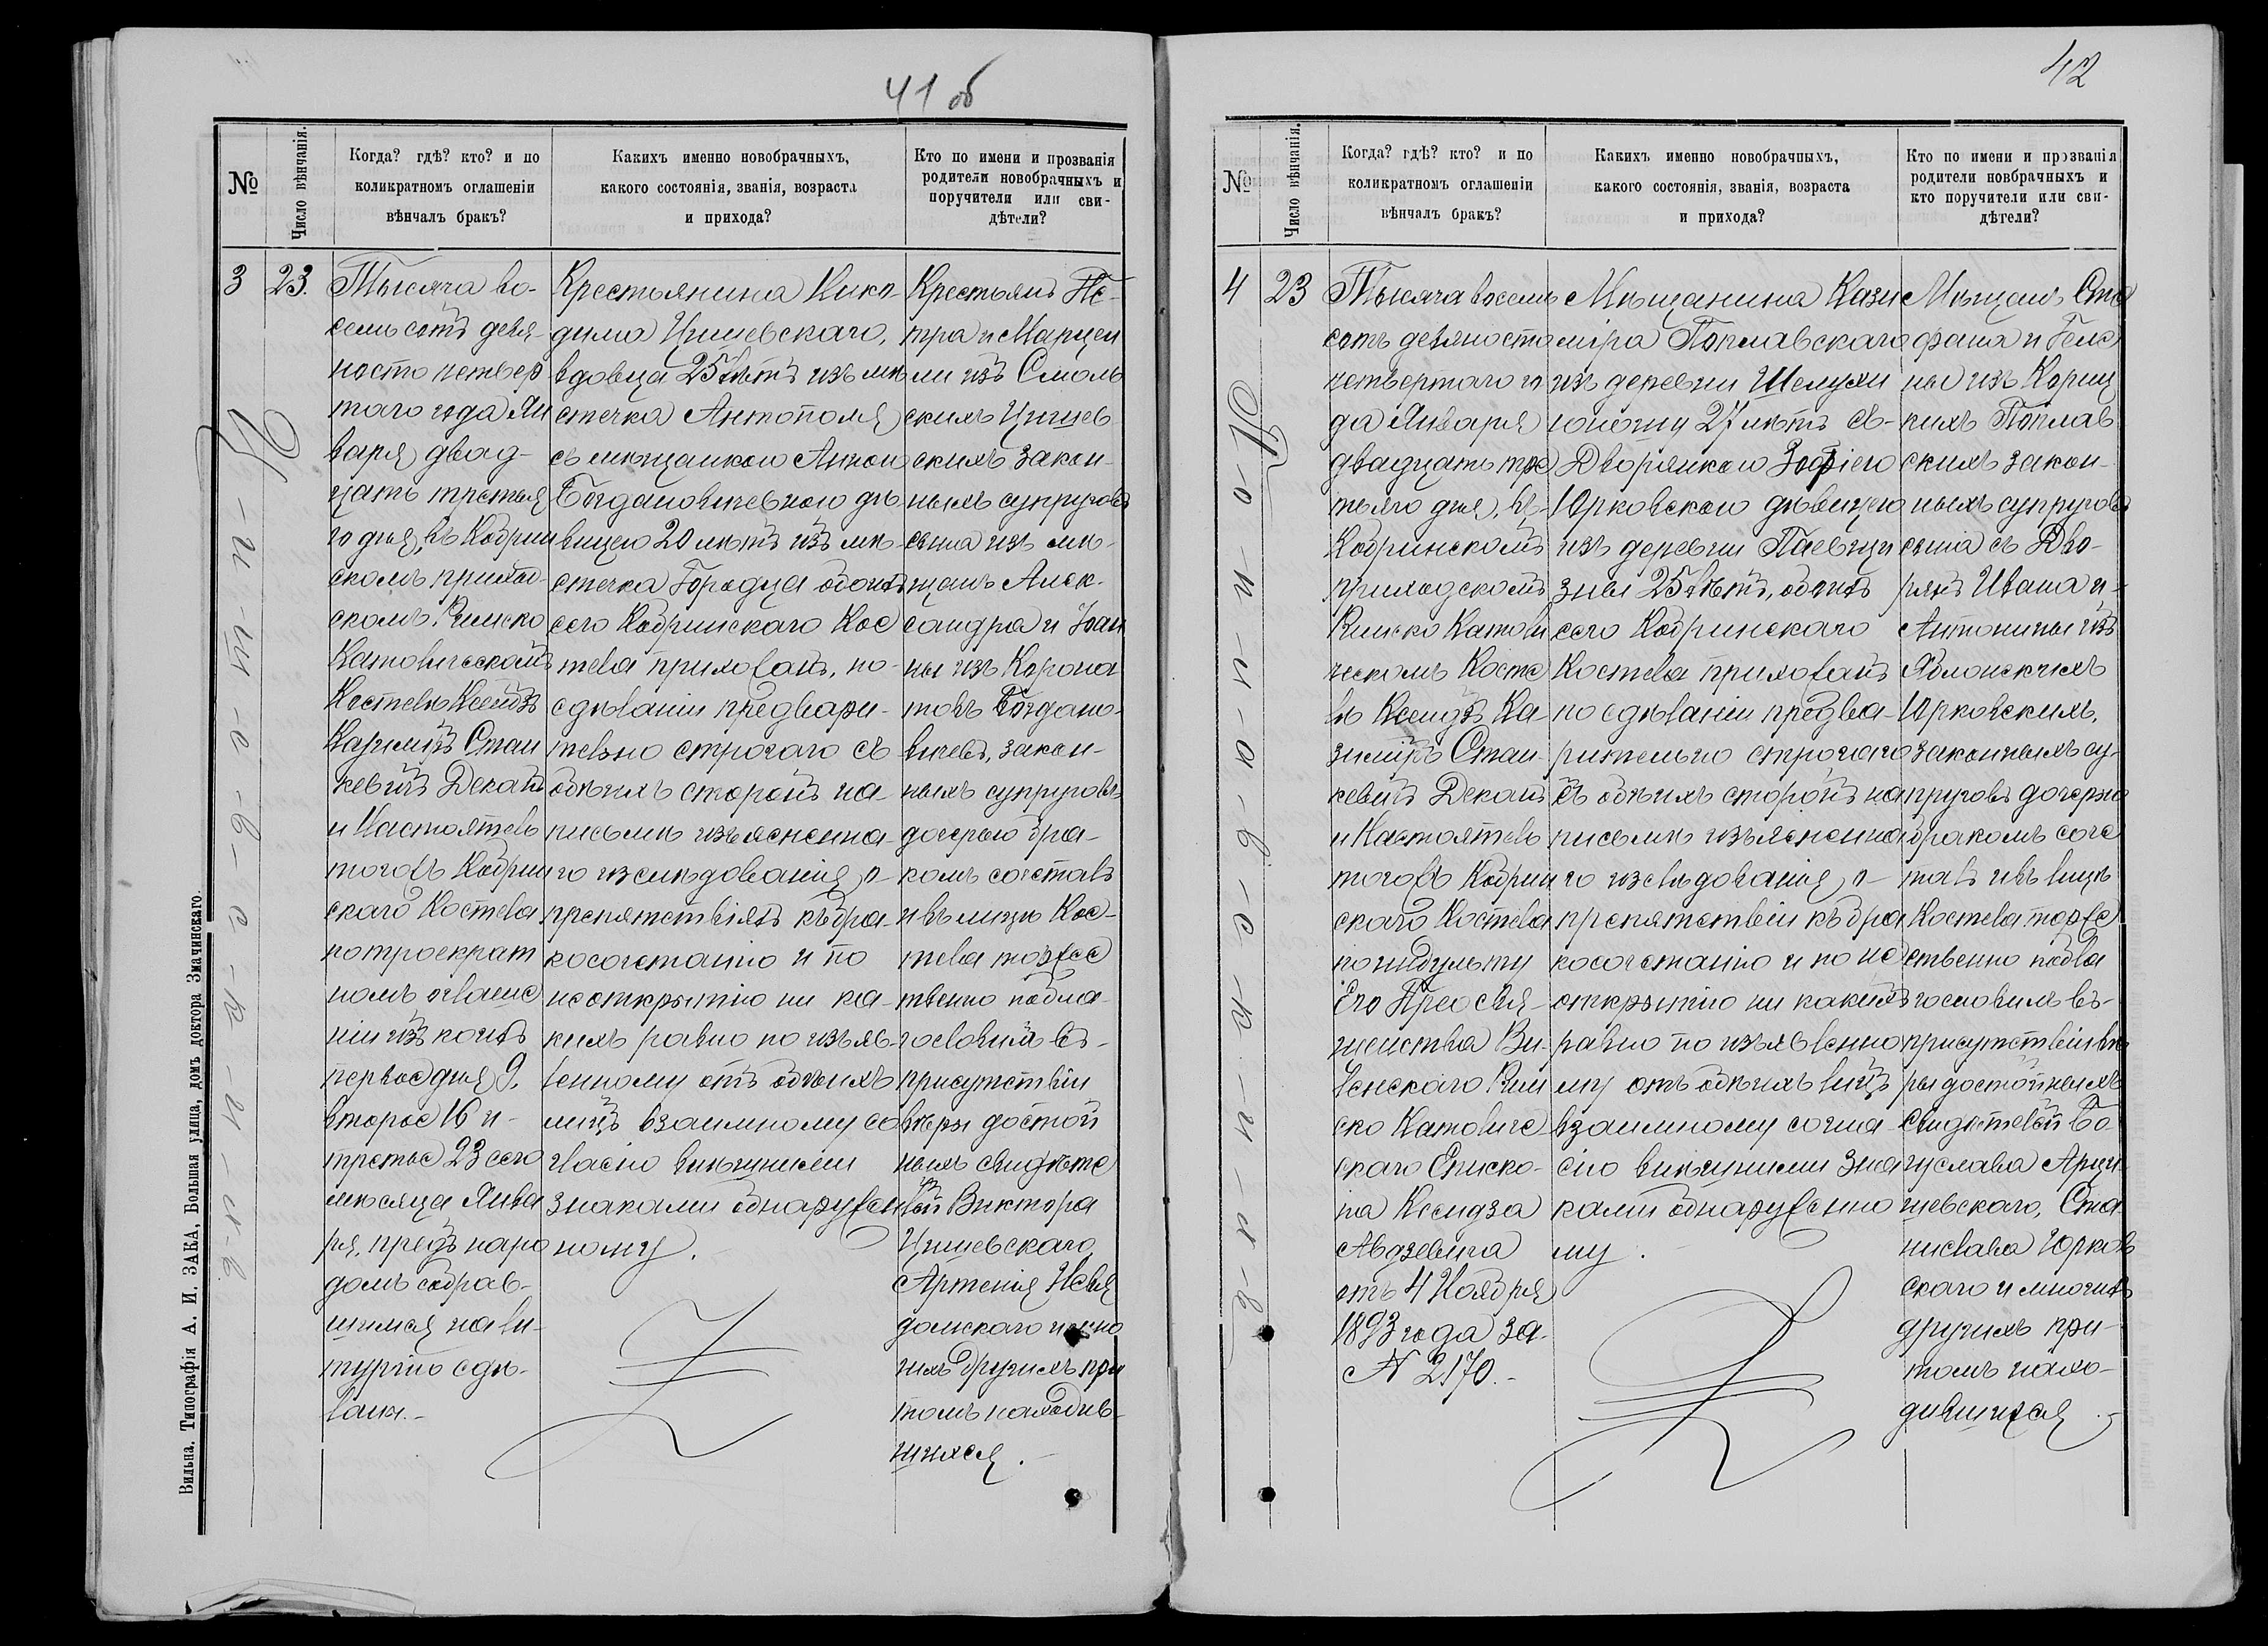 41 об
№
Число вѣнчанія.
Когда? гдѣ? кто? и по
коликратномъ оглашеніи
вѣнчалъ бракъ?
Какихъ именно новобрачныхъ,
какого состоянія, званія, возраста
и прихода?
Кто по имени и прозванія
родители новобрачныхъ и
поручители или сви-
дѣтели?
3
23.
Тысяча во-
семь сотъ девя-
носто четвер
таго года Ян
варя двад-
цать третья
го дня, въ Кобрин
скомъ приход-
скомъ Римско
Католическомъ
Костелѣ Ксендзъ
Казиміръ Стан
кевичъ Деканъ
и Настоятель
тогожъ Кобрин
скаго Костела
по троекрат
номъ оглаше
ніи изъ коихъ
первое дня 9,
второе 16 и
третье 23 сего
мѣсяца Янва
ря, предъ наро
домъ собрав-
шимся на ли-
тургію сдѣ-
ланы.-
Крестьянина Нико-
дима Цишевскаго,
вдовца 25 лѣтъ изъ мѣ
стечка Антополя
съ мѣщанкою Анною
Богдановичевною дѣ
вицею 20 лѣтъ изъ мѣ-
стечка Городца обоихъ
сего Кобринскаго Кос
тела прихожанъ, по-
сдѣланіи предвари-
тельно строгаго съ
обѣихъ сторонъ на-
письмѣ изъясненна-
го изслѣдованія о-
препятствіяхъ къ бра-
косочетанію и по
неоткрытію ни ка-
кихъ равно по изъяв-
ленному отъ обѣихъ
лицъ взаимному со
гласію внѣшними
знаками обнаружен
ному.
Крестьянъ Пе-
тра и Марцел
ли изъ Смоль
скихъ Цишев
скихъ закон-
ныхъ супруговъ
сына изъ мѣ-
щанъ Алек-
сандра и Іоан
ны изъ Корона
товъ Богдано-
вичевъ, закон-
ныхъ супруговъ
дочерью бра-
комъ сочеталъ
и въ лицѣ Кос-
тела торжес
твенно побла-
гословилъ въ-
присутствіи
вѣры достой
ныхъ свидѣте
лей Виктора
Цишевскаго
Артенія Невя
домскаго и мно
гихъ другихъ при
томъ находив-
шихся.
Вильна. Типографія А. И. ЗАКА, Большая улица, домъ доктора Змачинскаго.
42
№
Число вѣнчанія.
Когда? гдѣ? кто? и по
коликратномъ оглашеніи
вѣнчалъ бракъ?
Какихъ именно новобрачныхъ,
какого состоянія, званія, возраста
и прихода?
Кто по имени и прозванія
родители новбрачныхъ и
кто поручители или сви-
дѣтели?
4
23
Тысяча восемь
сотъ девяносто
четвертаго го
да Января
двадцать тре
тьяго дня, въ-
Кобринскомъ
приходскомъ
Римско Католи
ческомъ Косте
лѣ Ксендзъ Ка-
зиміръ Стан-
кевичъ Деканъ
и Настоятель
тогожъ Кобрин
скаго Костела
по индульту
Его Преосвя-
щенства Ви-
ленскаго Рим
ско Католиче
скаго Еписко-
па Ксендза
Авдзевича
отъ 4 Ноября
1893 года за
N 2170.-
Мѣщанина Кази
міра Поплавскаго
изъ деревни Шелухи
юношу 27 лѣтъ съ-
Дворянкою Зофіею
Юрковскою дѣвицею
изъ деревни
25 лѣтъ, обоихъ
сего Кобринскаго
Костела прихожанъ
по сдѣланіи предва-
рительно строгаго
съ обѣихъ сторонъ на
письмѣ изъясненна
го изслѣдованія о-
препятствіи къ бра
косочетанію и по не
открытію ни какихъ
равно по изъявленно
му отъ обѣихъ лицъ
взаимному согла-
сію внѣшними зна
ками обнаруженно
му.
Мѣщанъ Сте
фана и Геле
ны изъ Кориц
кихъ Поплав
скихъ закон-
ныхъ супруговъ
сына съ Дво-
рянъ Ивана и-
Антонины изъ
Яблонскихъ
Юрковскихъ,
законныхъ су-
пруговъ дочерью
бракомъ соче
талъ и въ лицѣ
Костела торже
ственно побла
гословилъ въ-
присутствіи вѣ
ры достойныхъ
свидѣтелей Бо-
гуслава Арци-
шевскаго, Ста
нислава Юрков
скаго и многихъ
другихъ при-
томъ нахо-
дившихся.